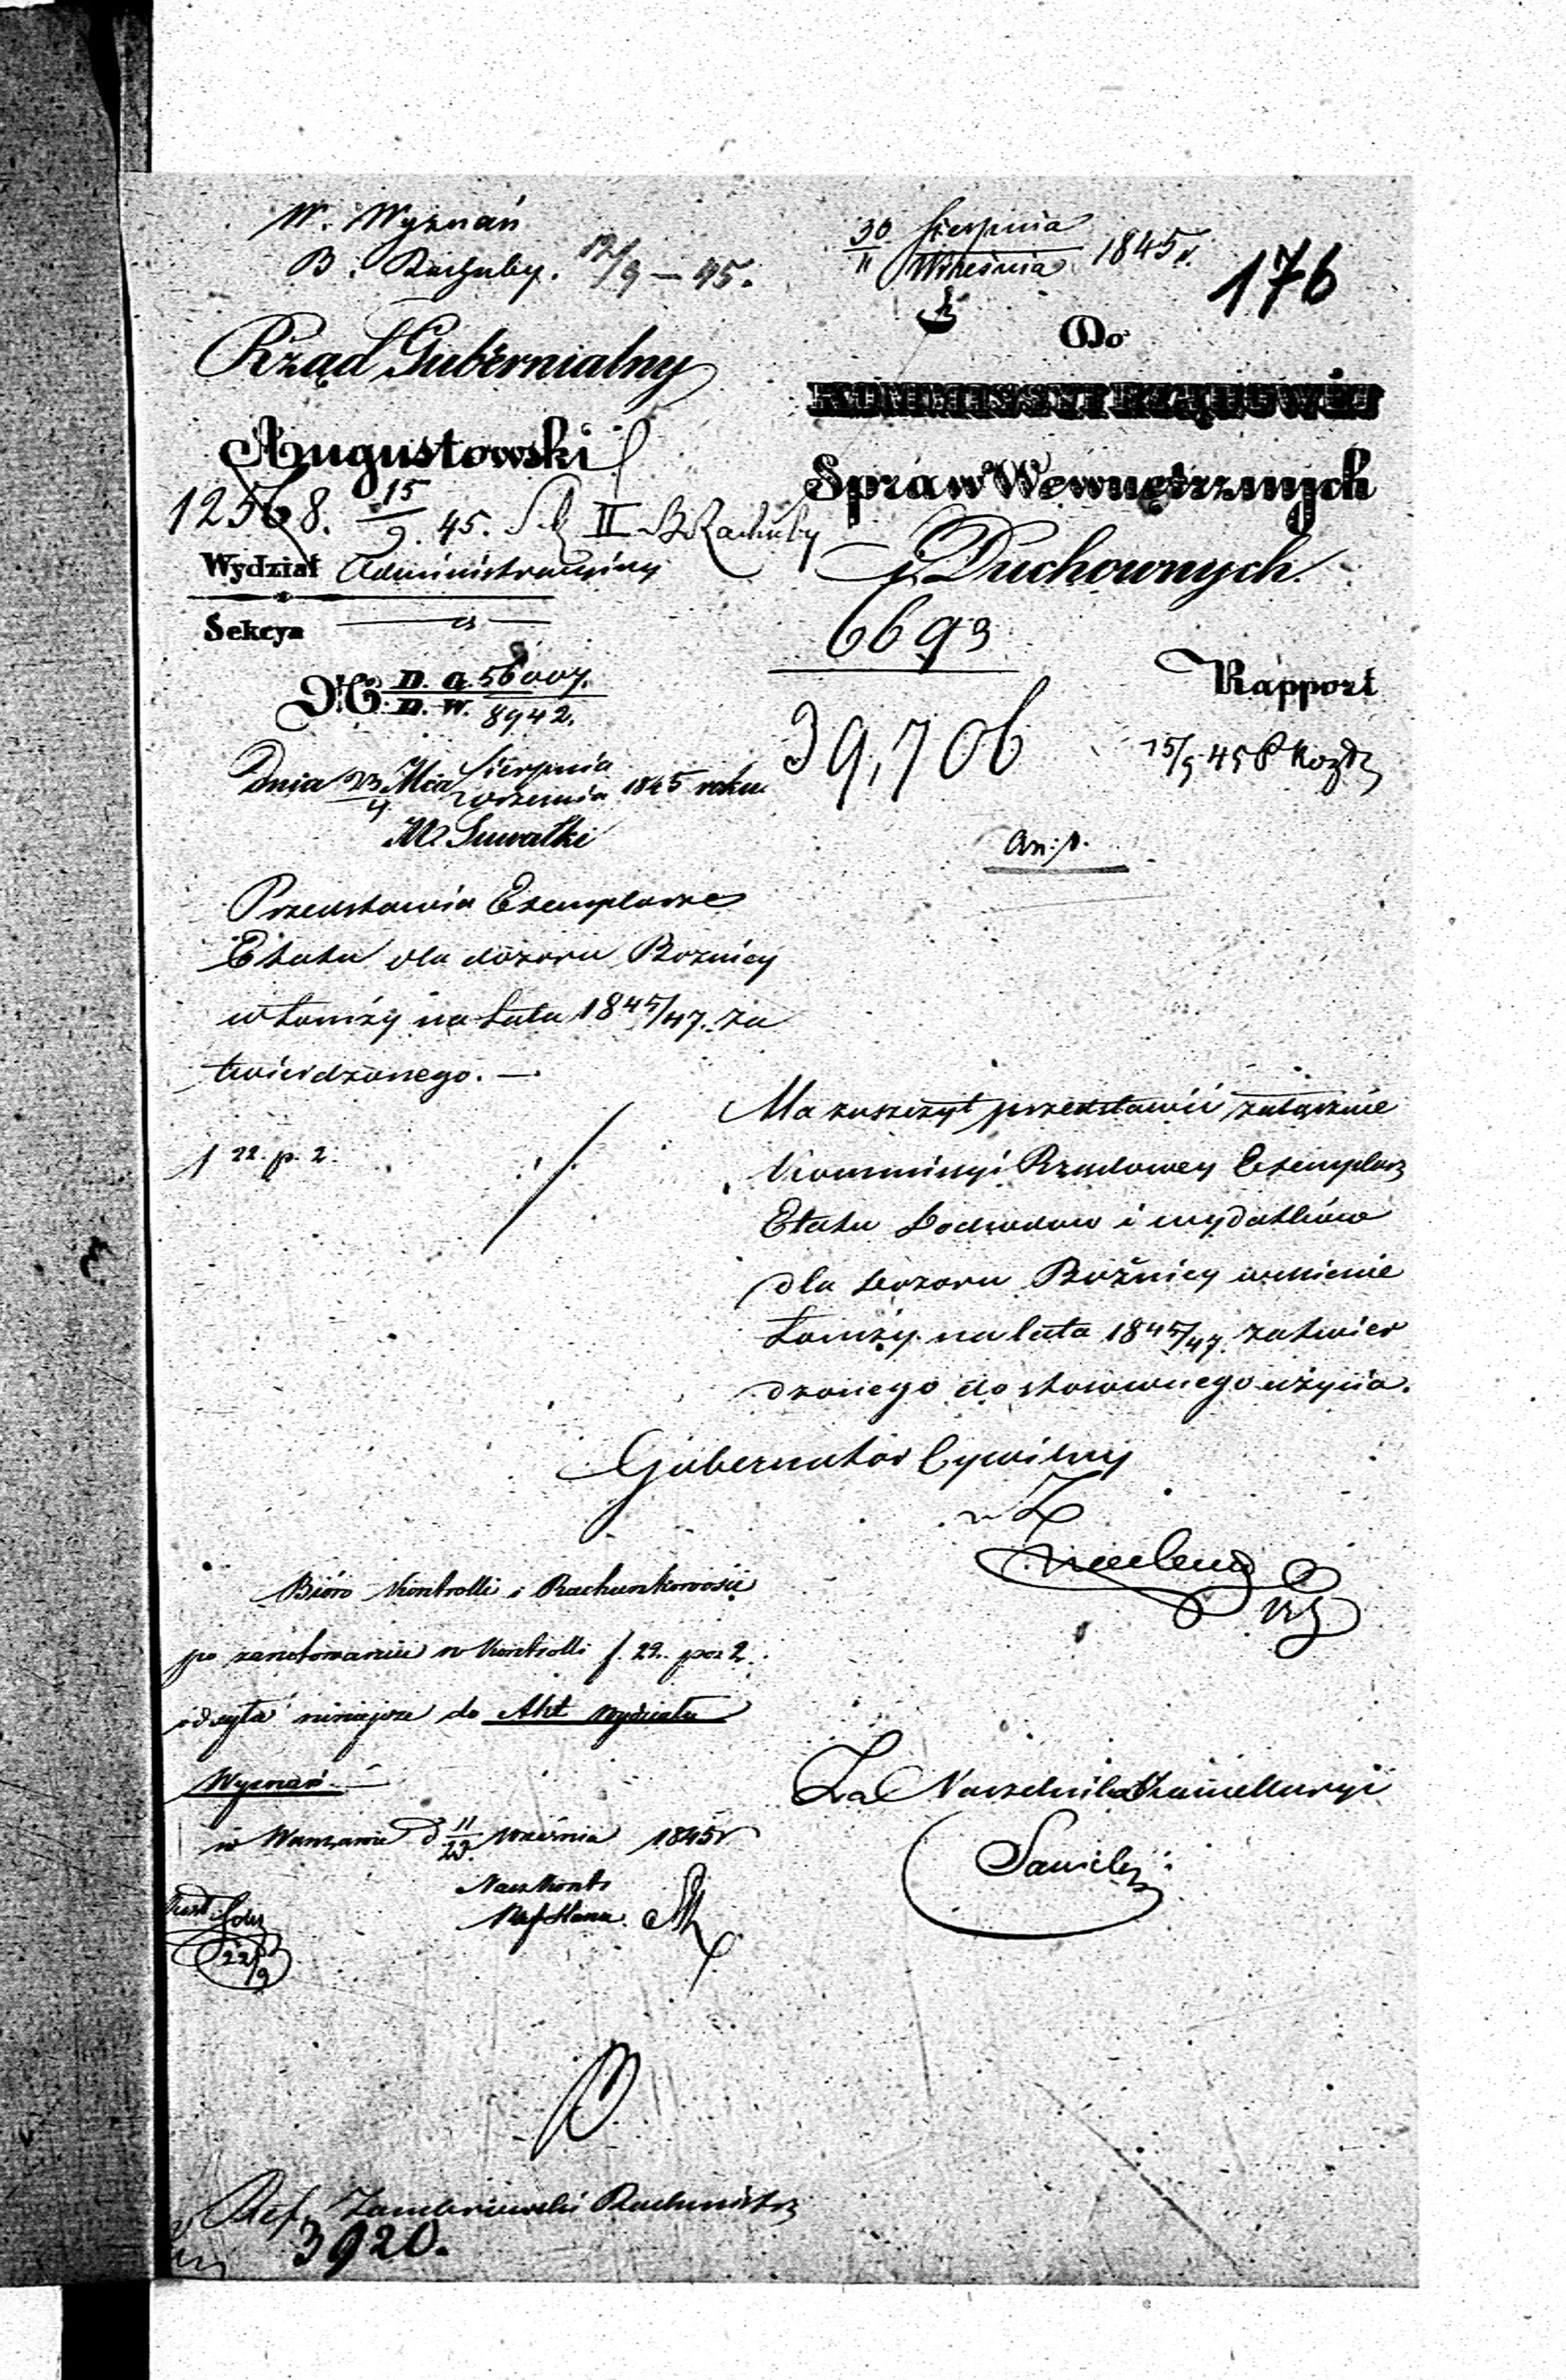 W. Wyznań
B. Rachuby. 12/9 — 45.
30 Sierpnia
11 Września 1845 r.
176
Rząd Gubernialny
Augustowski
12568. 15/9. 45. II B Rachuby
Wydział Administracyiny
Sekcya
№ D. G. 56007.
D. W. 8942.
Dnia 23 Mca Sierpnia
4 Września 1845 roku
M. Suwałki
Do
KOMMISSYI RZĄDOWÉJ
Spraw Wewnętrznych
i Duchownych.
6693
39,706
Rapport
15/9 45
An: 1.
Przedstawia Exemplarz
Etatu dla dozoru Boznicy
w Łomży na Lata 1845/47. za
twierdzonego. —
f 22. p. 2.
Ma zaszczyt przedstawić załącznie
Kommissyi Rządowey Exemplarz
Etatu Dochodow i wydatków
dla Dozoru Bożnicy w mieście
Łomży na lata 1845/47. zatwier
dzonego do stosownego użycia.
Gubernator Cywilny
w Z
Bióro Kontrolli i Rachunkowości
po zanotowaniu w Kontrolli f. 22. poz 2.
odsyła niniejsze do Akt Wydziału
Wyznań. —
w Warszawie d 11/23. Września 1845 r
Nacz Kontr
Za Naczelnika Kancellaryi
22/9
Ref. Zambrzowski Rachmistrz
3920.